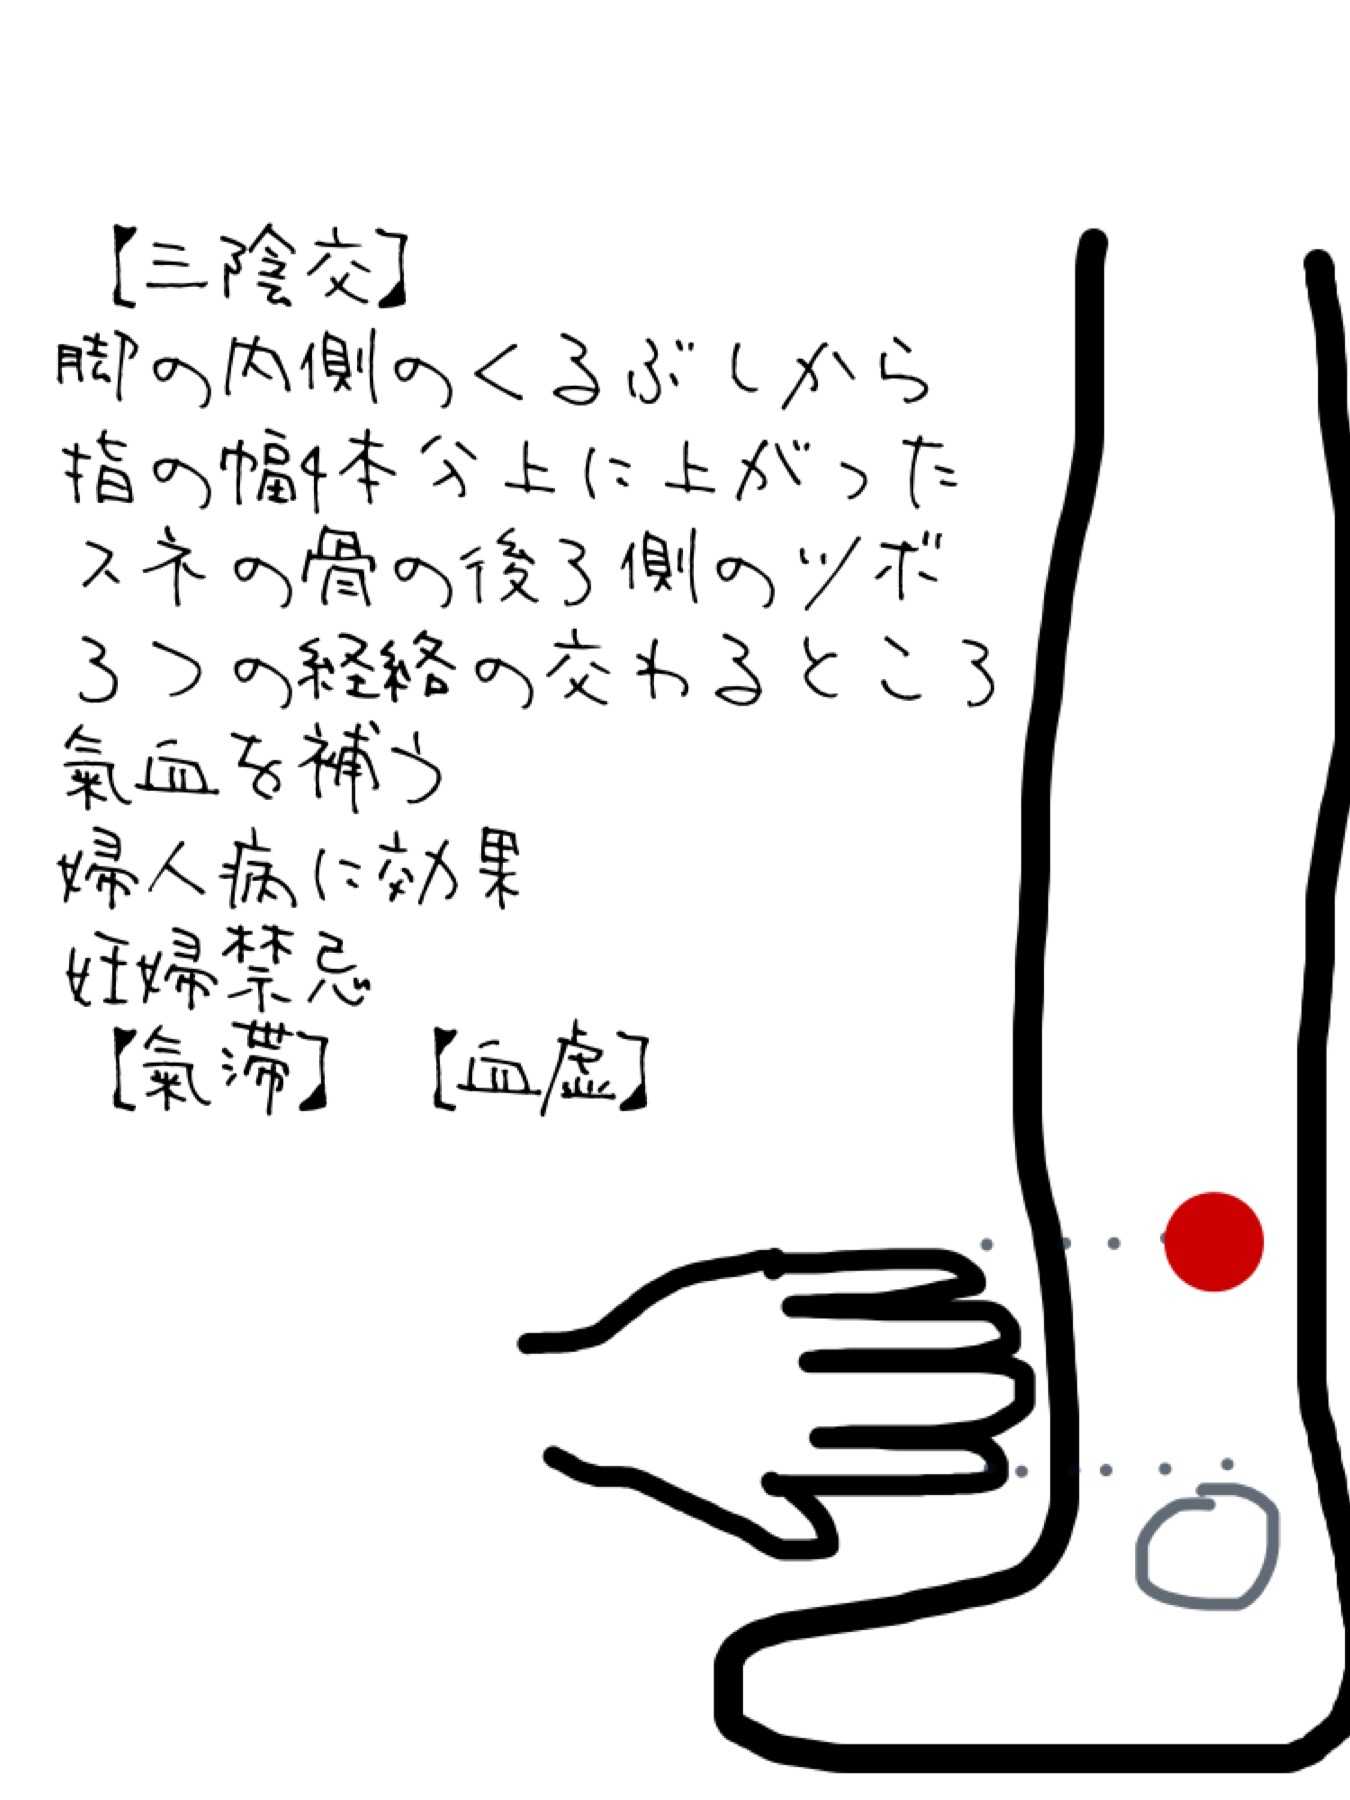 【三陰交】
脚の内側のくるぶしから
指の幅4本分上に上がった
スネの骨の後ろ側のツボ
3つの経絡の交わるところ
氣血を補う
婦人病に効果
妊婦禁忌
【氣滞】 【血虚】